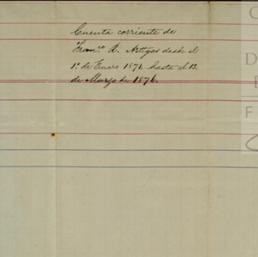 Cuenta corriente de
Franco. A. Artigas desde el
1º. de Enero 1876 hasta el 13.
de Marzo de 1876.
C
D
F